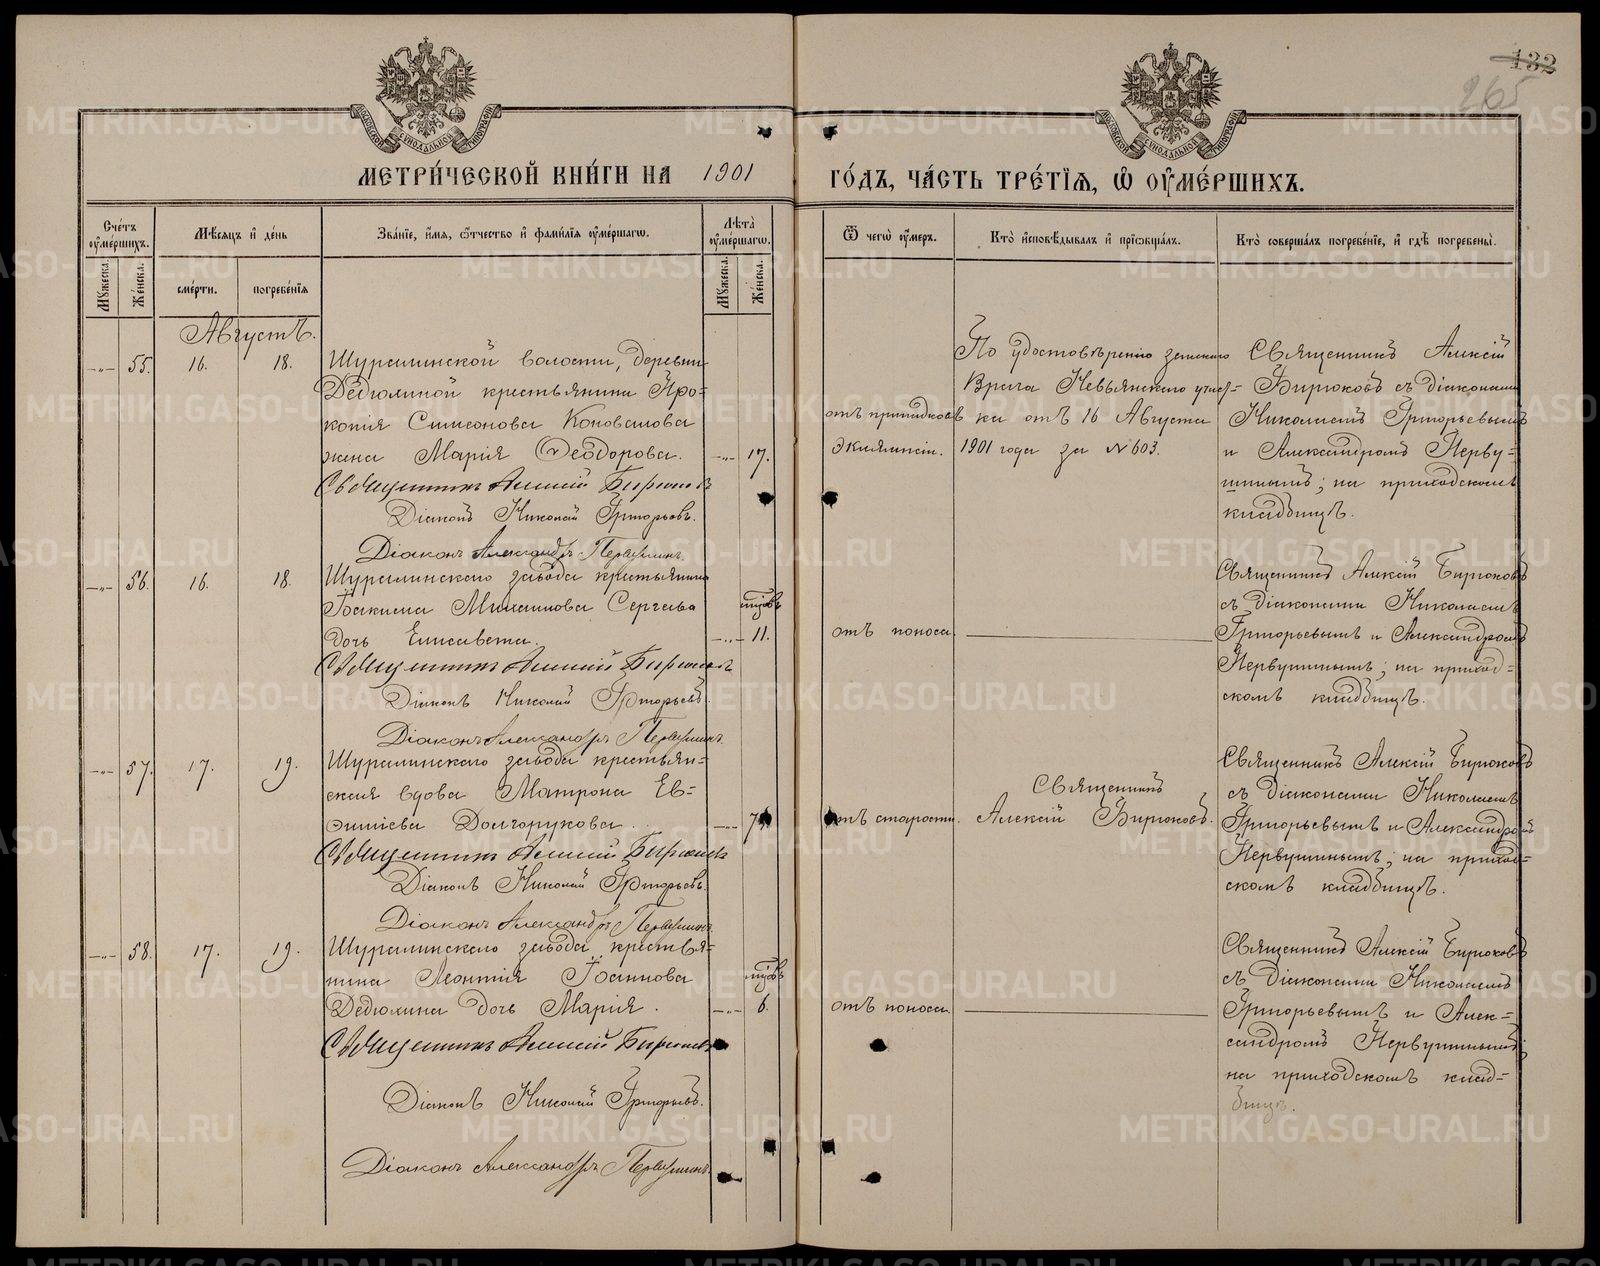 132
265
МЕТРИ́ЧЕСКОЙ КНИ́ГИ НА 1901 ГО́ДЪ, ЧА́СТЬ ТРЕ́ТЇѦ, Ѽ ОУ҆МЕ́РШИХЪ.
Сче́тъ оу҆ме́ршихъ.
Мѣ́сѧцъ и҆ де́нь
Зва́нїе, и҆́мѧ, ѻ҆́тчество и҆ фами́лїѧ оу҆ме́ршагѡ.
Лѣта̀ оу҆ме́ршагѡ.
Ѿ чегѡ̀ оу҆́меръ.
Кто̀ и҆сповѣ́дывалъ и҆ прїѡбща́лъ.
Кто̀ соверша́лъ погребе́нїе, и҆ гдѣ̀ погребены̀.
Мꙋ́жеска.
Же́нска.
сме́рти.
погребе́нїѧ
Мꙋ́жеска.
Же́нска.
Августъ.
-„- 55. 16. 18.
Шуралинской волости, деревни
Дедюлиной крестьянина Про-
копія Симеонова Коновалова
жена Марія Ѳеодорова. -„- 17.
Священникъ Алексій Бирюковъ
Діаконъ Николай Григорьевъ.
Діаконъ Александръ Первушинъ.
отъ припадковъ
эклямпсіи.
По удостовѣренію земскаго
Врача Невьянскаго участ-
ка отъ 16 Августа
1901 года за № 603.
Священникъ Алексій
Бирюковъ съ діаконами
Николаемъ Григорьевымъ
и Александромъ Перву-
шинымъ; на приходскомъ
кладбищѣ.
-„- 56. 16. 18.
Шуралинскаго завода крестьянина
Іоакима Михаилова Сергѣева
дочь Елисавета. -„- 11.
Священникъ Алексій Бирюковъ
Діаконъ Николай Григорьевъ.
Діаконъ Александръ Первушинъ.
отъ поноса.
Священникъ Алексій Бирюковъ
съ діаконами Николаемъ
Григорьевымъ и Александромъ
Первушинымъ; на приход-
скомъ кладбищѣ.
-„- 57. 17. 19.
Шуралинскаго завода крестьян-
ская вдова Матрона Ев-
фиміева Долгорукова. -„-
Священникъ Алексій Бирюковъ
Діаконъ Николай Григорьевъ.
Діаконъ Александръ Первушинъ.
отъ старости.
Священникъ
Алексій Бирюковъ.
Священникъ Алексій Бирюковъ
съ діаконами Николаемъ
Григорьевымъ и Александромъ
Первушинымъ; на приход-
скомъ кладбищѣ.
-„- 58. 17. 19.
Шуралинскаго завода крестья-
нина Леонтія Іоаннова
Дедюлина дочь Марія. -„- 6.
Священникъ Алексій Бирюковъ
Діаконъ Николай Григорьевъ.
Діаконъ Александръ Первушинъ.
отъ поноса.
Священникъ Алексій Бирюковъ
съ діаконами Николаемъ
Григорьевымъ и Алек-
сандромъ Первушинымъ;
на приходскомъ клад-
бищѣ.
METRIKI.GASO-URAL.RU